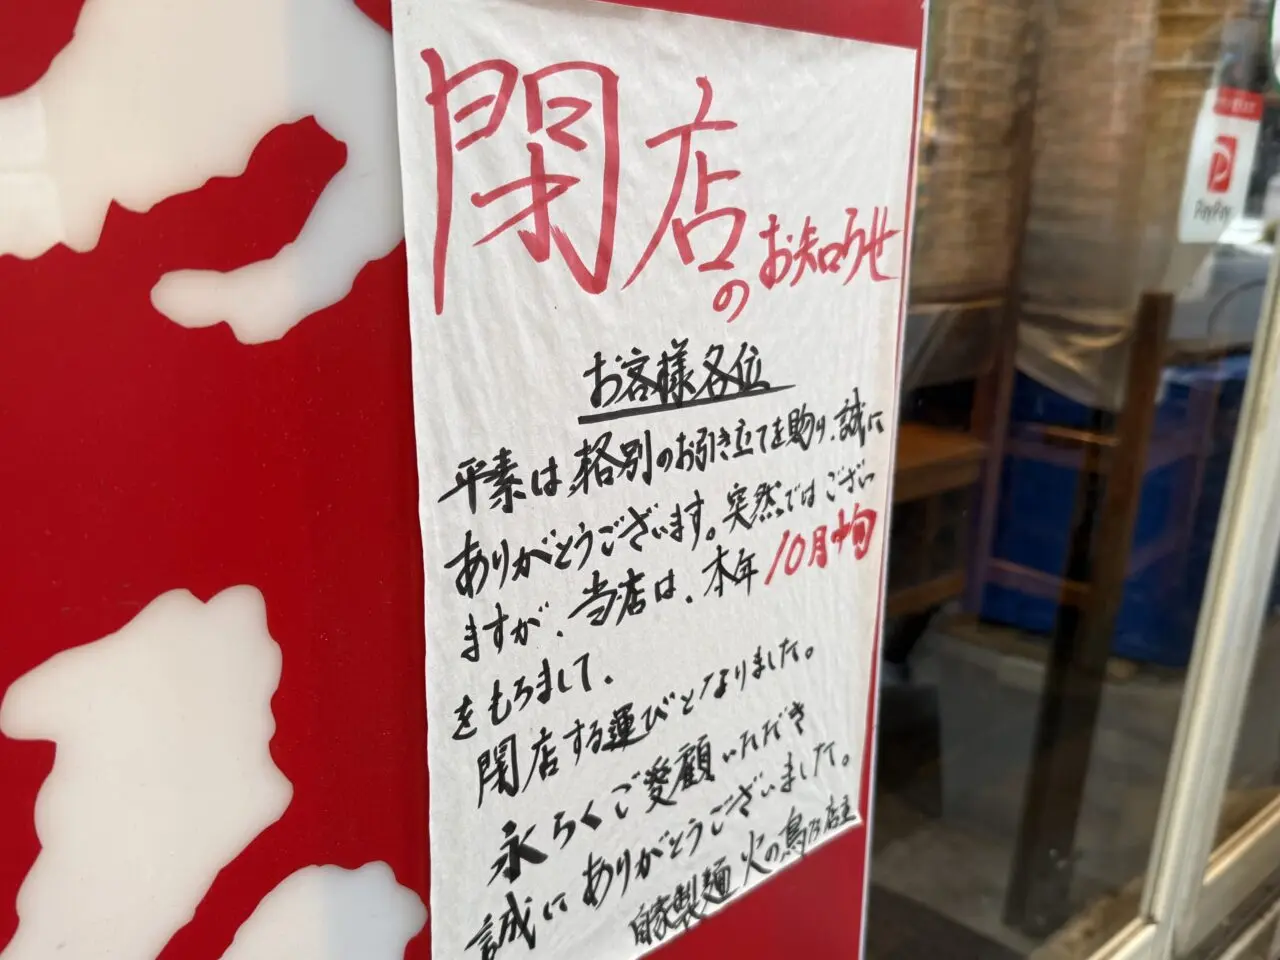 閉店のお知らせ
お客様各位
平素は格別のお引き立てを賜り、誠に
ありがとうございます。突然ではござい
ますが、当店は、本年10月中旬
をもちまして、
閉店する運びとなりました。
永らくご愛顧いただき
誠にありがとうございました。
自家製麺 火の鳥 店主
PayPay